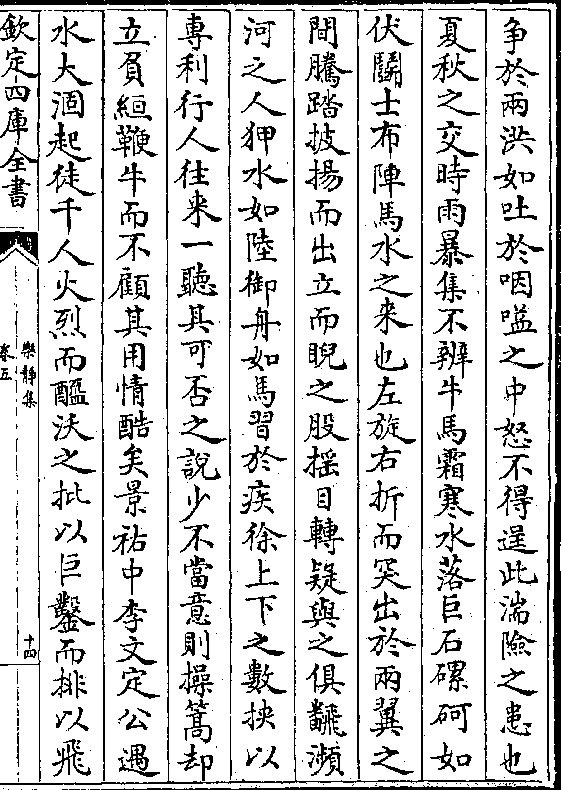 争於兩洪如吐於咽嗌之中怒不得逞此湍險之患也
夏秋之交時雨暴集不辨牛馬霜寒水落巨石磥砢如
伏鬬士布陣馬水之来也左旋右折而突出於兩翼之
間騰踏披揚而出立而睨之股揺目轉疑與之俱飜瀕
河之人狎水如陸御舟如馬習於疾徐上下之數挾以
専利行人往来一聽其可否之説少不當意則操篙却
立負絙鞭牛而不顧其用情酷矣景祐中李文定公遇
水大涸起徒千人火烈而醯沃之批以巨鑿而排以飛
欽定四庫全書
樂静集
卷五
十四